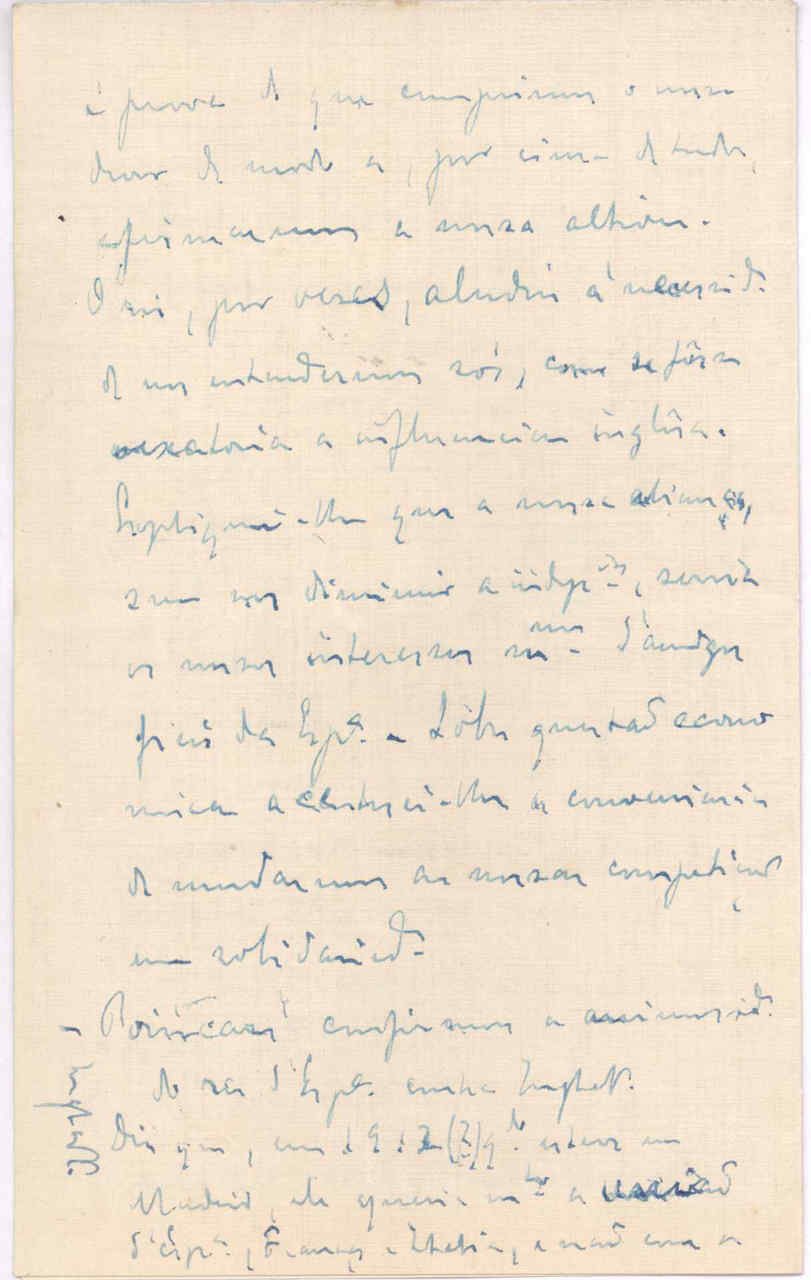 é prova de que cumprimos o nosso
dever de modo a, por cima de tudo,
afirmarmos a nossa altivez.
O rei, por vezes, aludiu á necessid.
de nos entendermos sós, como se fôsse
vexatoria a influencia inglêsa.
Expliquei-lhe que a nossa aliança,
sem nos diminuir a indep.cia, servia
os nossos interesses d'amigos
fieis da Esp.a - Sôbre questaõ econo
mica accentuei-lhe a conveniencia
de mudarmos as nossas competições
em solidaried.
- Poincaré confirmou a animosid.
do rei d'Esp.a contra Inglat.
Diz que, em 1913 (?) q.do esteve em
Madrid, ele queria m.to a uniaõ
d'Esp.a, França e Italia, e naõ com a